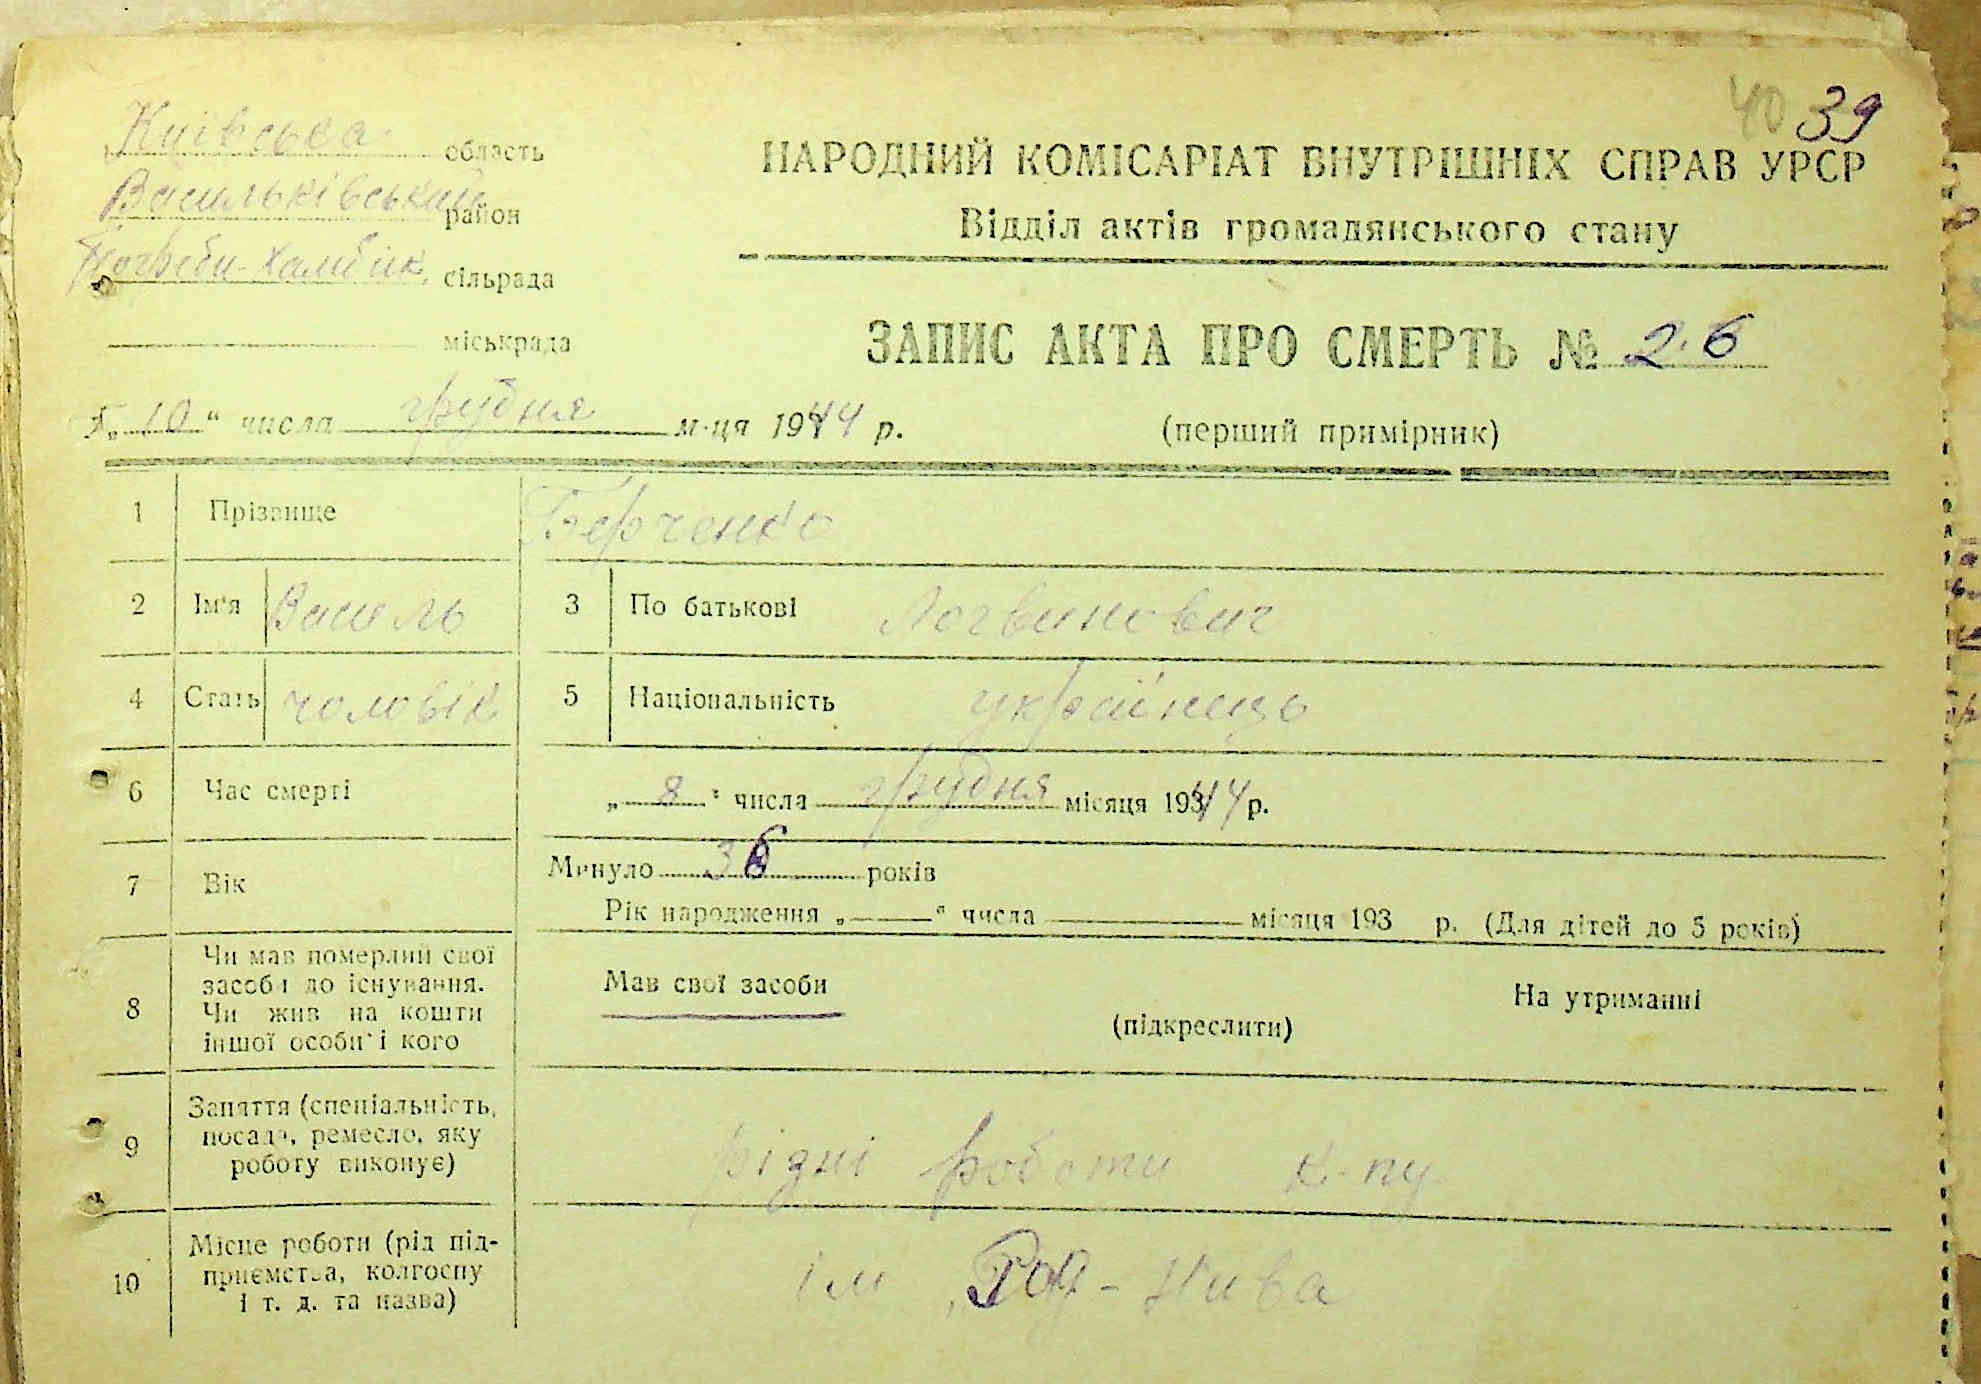 40 39
Київська область
Васильківський район
Погреби-Хамбик. сільрада
міськрада
НАРОДНИЙ КОМІСАРІАТ ВНУТРІШНІХ СПРАВ УРСР
Відділ актів громадянського стану
ЗАПИС АКТА ПРО СМЕРТЬ № 26
„10“ числа грудня м-ця 1944 р.
(перший примірник)
1 Прізвище Берченко
2 Ім'я Василь 3 По батькові Логвинович
4 Стать чоловік 5 Національність українець
6 Час смерті „8“ числа грудня місяця 1944 р.
7 Вік Минуло 36 років
Рік народження „—“ числа — місяця 193 р. (Для дітей до 5 років)
8 Чи мав померлий свої
засоби до існування.
Чи жив на кошти
іншої особи і кого
Мав свої засоби
(підкреслити)
На утриманні
9 Заняття (спеціальність,
посада, ремесло, яку
роботу виконує)
рідні роботи к-пу
10 Місце роботи (рід під-
приємства, колгоспу
і т. д. та назва)
ім „Рад-Нива